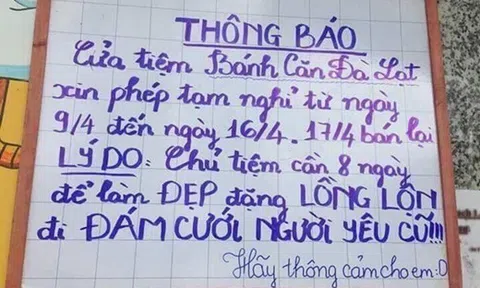 THÔNG BÁO
Cửa tiệm Bánh Căn Đà Lạt
xin phép tạm nghỉ từ ngày
9/4 đến ngày 16/4. 17/4 bán lại
LÝ DO: Chủ tiệm cần 8 ngày
để làm ĐẸP đặng LỒNG LỘN
đi ĐÁM CƯỚI NGƯỜI YÊU CŨ!!!
Hãy thông cảm cho em :D